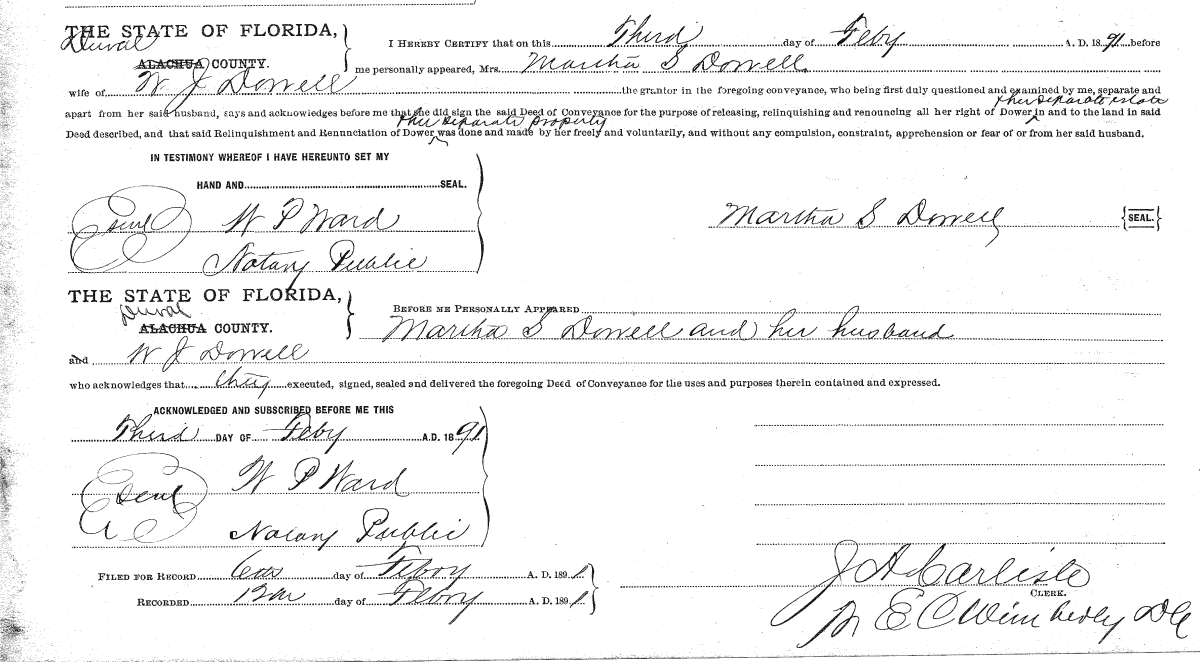 THE STATE OF FLORIDA,
Duval
ALACHUA COUNTY.
I HEREBY CERTIFY that on this Third day of Feby A. D. 1891 before
me personally appeared, Mrs. Martha S Dowell
wife of W J Dowell the grantor in the foregoing conveyance, who being first duly questioned and examined by me, separate and
& her separate estate
apart from her said husband, says and acknowledges before me that she did sign the said Deed of Conveyance for the purpose of releasing, relinquishing and renouncing all her right of Dower in and to the land in said
& her separate property
Deed described, and that said Relinquishment and Renunciation of Dower was done and made by her freely and voluntarily, and without any compulsion, constraint, apprehension or fear of or from her said husband.
IN TESTIMONY WHEREOF I HAVE HEREUNTO SET MY
HAND AND SEAL.
Seal W P Ward
Martha S Dowell {SEAL.}
Notary Public
THE STATE OF FLORIDA,
Duval
ALACHUA COUNTY.
BEFORE ME PERSONALLY APPEARED
Martha S Dowell and her husband
and W J Dowell
who acknowledges that they executed, signed, sealed and delivered the foregoing Deed of Conveyance for the uses and purposes therein contained and expressed.
ACKNOWLEDGED AND SUBSCRIBED BEFORE ME THIS
Third DAY OF Feby A.D. 1891
Seal W P Ward
Notary Public
FILED FOR RECORD 6th day of Feby A. D. 1891
RECORDED 12th day of Feby A. D. 1891
J A Carlisle
CLERK.
E C Wimberly DC